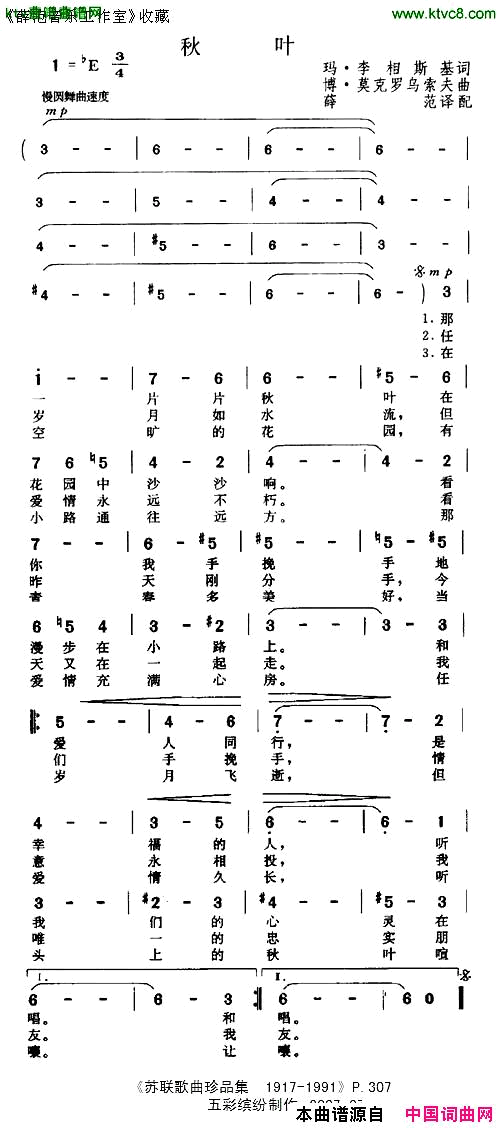 www.ktvc8.com
《薛范音乐工作室》收藏
www.ktvc8.com
秋 叶
1=♭E 3/4
玛·李相斯基词
博·莫克罗乌索夫曲
薛 范译配
慢圆舞曲速度
mp
( 3 - - | 6 - - | 6 - - | 6 - - |
3 - - | 5 - - | 4 - - | 4 - - |
4 - - | #5 - - | 6 - - | 3 - - |
#4 - - | #5 - - | 6 - - | 6 - ) 3 |
mp
1.那
2.任
3.在
i - - | 7 - 6 | 6 - - | #5 - 6 |
一 片 片 秋 叶 在
岁 月 如 水 流, 但
空 旷 的 花 园, 有
7 6 ♮5 | 4 - 2 | 4 - - | 4 - 2 |
花 园 中 沙 沙 响。 看
爱 情 永 远 不 朽。 看
小 路 通 往 远 方。 那
7 - - | 6 - #5 | #5 - - | ♮5 - #5 |
你 我 手 挽 手 地
昨 天 刚 分 手, 今
青 春 多 美 好, 当
6 ♮5 4 | 3 - #2 | 3 - - | 3 - 3 |
漫 步 在 小 路 上。 和
天 又 在 一 起 走。 我
爱 情 充 满 心 房。 任
5 - - | 4 - 6 | 7 - - | 7 - 2 |
爱 人 同 行, 是
们 手 挽 手, 情
岁 月 飞 逝, 但
4 - - | 3 - 5 | 6 - - | 6 - 1 |
幸 福 的 人, 听
意 永 相 投, 我
爱 情 久 长, 听
3 - - | #2 - 3 | #4 - - | #5 - 3 |
我 们 的 心 灵 在
唯 一 的 忠 实 朋
头 上 的 秋 叶 喧
I. II.
6 - - | 6 - 3 :| 6 - - | 6 0 ||
唱。 和 唱。
友。 我 友。
嚷。 让 嚷。
《苏联歌曲珍品集 1917-1991》P.307
五彩缤纷制作
本曲谱源自
中国词曲网